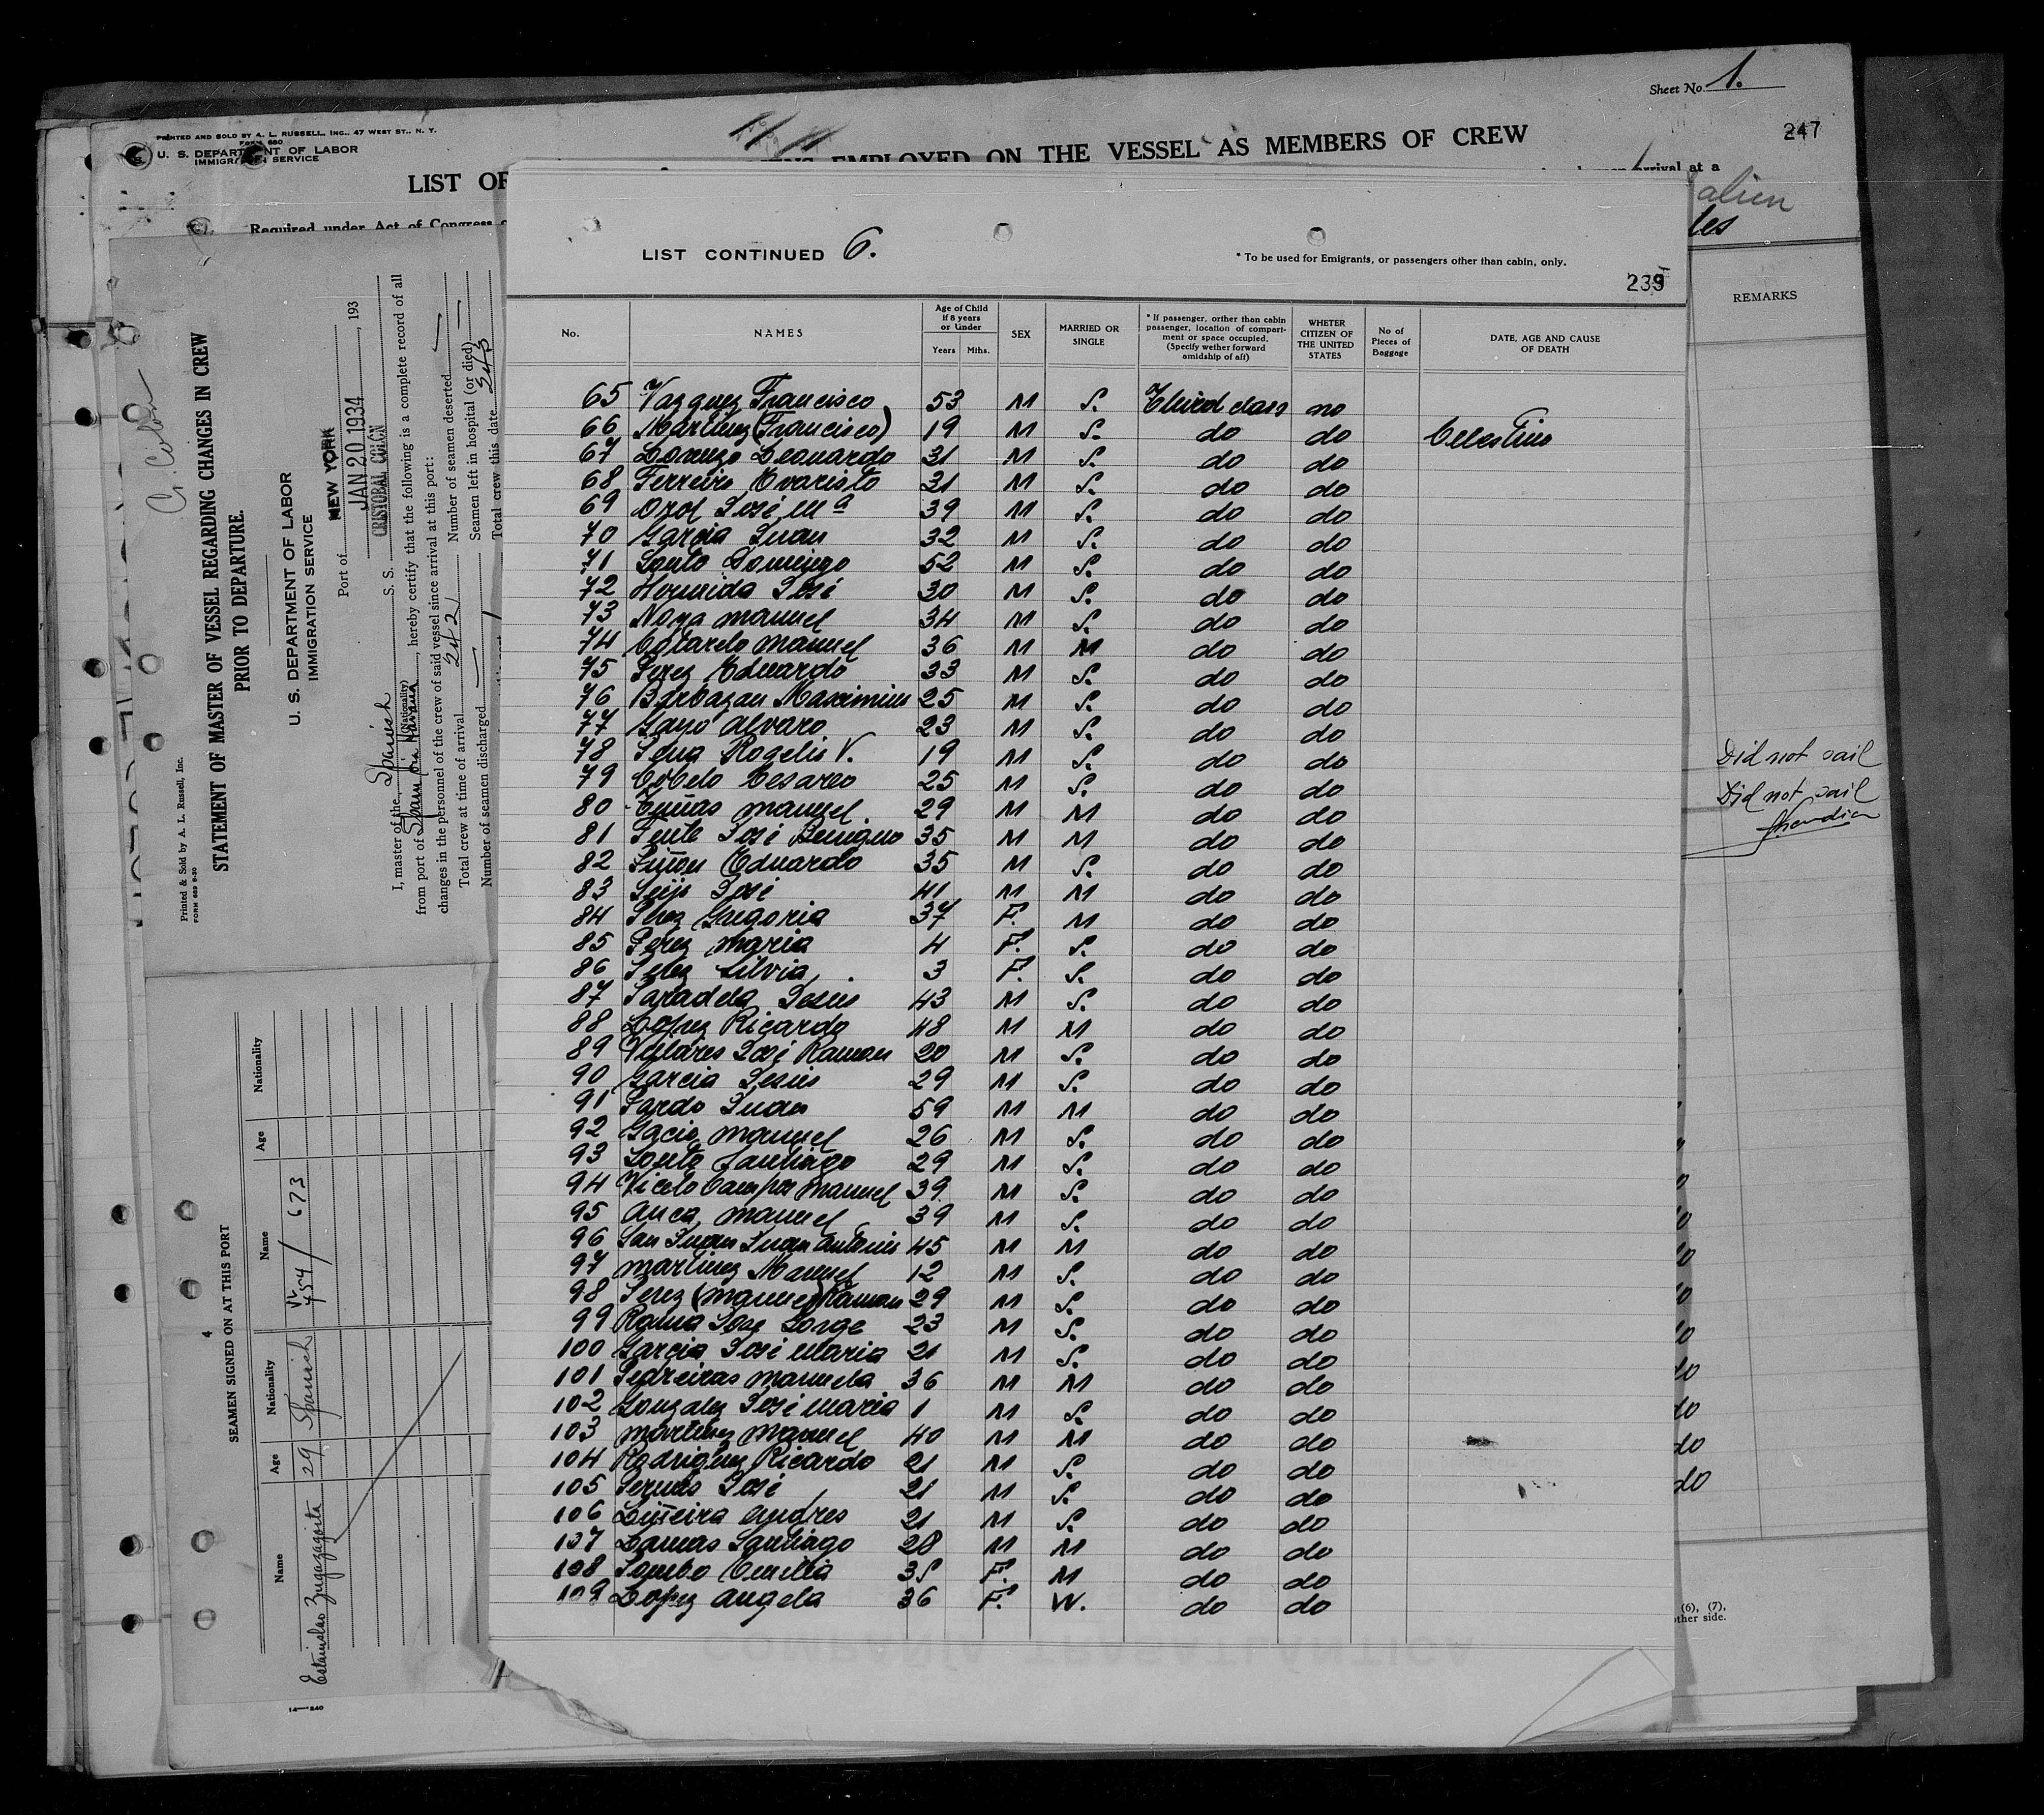 Sheet No. 1.
247
PRINTED AND SOLD BY A. L. RUSSELL, INC., 47 WEST ST., N. Y.
FORM 680
U. S. DEPARTMENT OF LABOR
IMMIGRATION SERVICE
EMPLOYED ON THE VESSEL AS MEMBERS OF CREW
LIST OF
arrival at a
Required under Act of Congress
alien
REMARKS
Did not sail
Did not sail
(6), (7),
other side.
C. Colon
Printed & Sold by A. L. Russell, Inc.
FORM 689 8-30
STATEMENT OF MASTER OF VESSEL REGARDING CHANGES IN CREW
PRIOR TO DEPARTURE.
U. S. DEPARTMENT OF LABOR
IMMIGRATION SERVICE
Port of NEW YORK
JAN 20 1934, 193
S. S. CRISTOBAL COLON
I, master of the Spanish
(Nationality)
from port of Spain via Havana, hereby certify that the following is a complete record of all
changes in the personnel of the crew of said vessel since arrival at this port:
Total crew at time of arrival 242 Number of seamen deserted —
Number of seamen discharged — Seamen left in hospital (or died) —
Total crew this date 243
4
SEAMEN SIGNED ON AT THIS PORT
Name Age Nationality Name Age Nationality
Estanislao Zugazagoitia 29 Spanish 454/673
14—1240
LIST CONTINUED 6.
* To be used for Emigrants, or passengers other than cabin, only.
239
No. NAMES Age of Child if 8 years or Under Years Mths. SEX MARRIED OR SINGLE * If passenger, orther than cabin passenger, location of compartment or space occupied. (Specify wether forward amidship of aft) WHETER CITIZEN OF THE UNITED STATES No of Pieces of Baggage DATE, AGE AND CAUSE OF DEATH
65 Vazquez Francisco 53 M S. Third class no
66 Martinez (Francisco) 19 M S. do do Celestino
67 Lorenzo Leonardo 31 M S. do do
68 Ferreiro Evaristo 21 M S. do do
69 José Mª 39 M S. do do
70 Garcia Juan 32 M S. do do
71 Souto Domingo 52 M S. do do
72 Hermida José 30 M S. do do
73 Noya Manuel 34 M S. do do
74 Cotarelo Manuel 36 M M do do
75 Perez Eduardo 33 M S. do do
76 Barbazan Maximino 25 M S. do do
77 Gayo Alvaro 23 M S. do do
78 Pena Rogelio V. 19 M S. do do
79 Cobelo Cesareo 25 M S. do do
80 Manuel 29 M M do do
81 José Benigno 35 M M do do
82 Piñon Eduardo 35 M S. do do
83 Seijo José 41 M M do do
84 Perez Gregoria 37 F. M do do
85 Perez Maria 4 F. S. do do
86 Perez Silvia 3 F. S. do do
87 Paradela Jesús 43 M S. do do
88 Lopez Ricardo 48 M M do do
89 José Ramon 20 M S. do do
90 Garcia Jesús 29 M S. do do
91 Pardo Juan 59 M M do do
92 Gacio Manuel 26 M S. do do
93 Souto Santiago 29 M S. do do
94 Campos Manuel 39 M S. do do
95 Manuel 39 M S. do do
96 San Juan Juan Antonio 45 M M do do
97 Martinez Manuel 12 M S. do do
98 Perez (Manuel) Ramon 29 M S. do do
99 José Jorge 23 M S. do do
100 Garcia José Maria 21 M S. do do
101 Pedreiras Manuela 36 M M do do
102 Gonzalez José Maria 1 M S. do do
103 Martinez Manuel 40 M M do do
104 Rodriguez Ricardo 21 M S. do do
105 José 21 M S. do do
106 Liñeira Andres 21 M S. do do
107 Lamas Santiago 28 M M do do
108 Pombo Emilia 35 F. M do do
109 Lopez Angela 36 F. W. do do